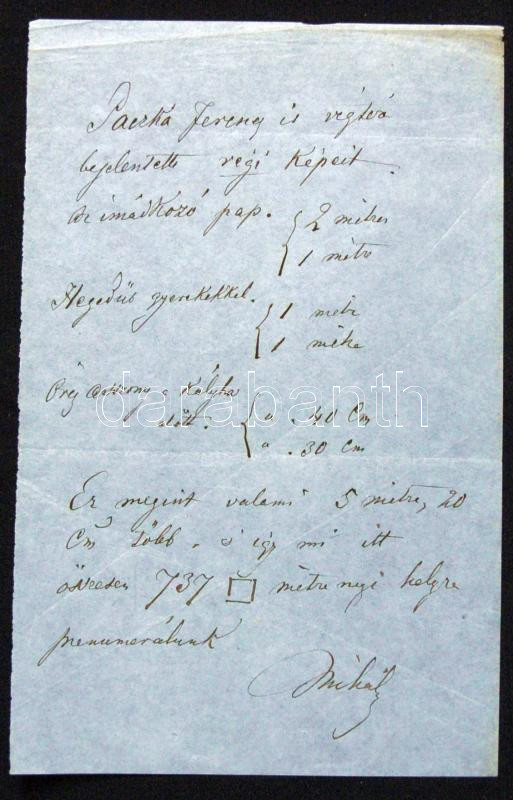 Paczka Ferenc is végtére
bejelentette régi képeit.
Az imádkozó pap. { 2 métres
1 métre
Hegedüs gyerekekkel. { 1 metre
1 métre
Öreg asszony a kályha
előtt. { a .40 Cm
a .30 cm
darabanth
Ez megint valami 5 métre, 20
Cm több. s így mi itt
öszvesen 737 □ métrenyi helyre
prenumerálunk
Mihály